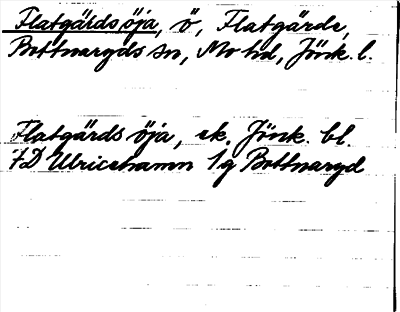 Flatgärdsöja, ö, Flatgärde,
Bottnaryds sn, Mo hd, Jönk. l.
Flatgärds öja, ek. Jönk. bl.
7D Ulricehamn Sg Bottnaryd